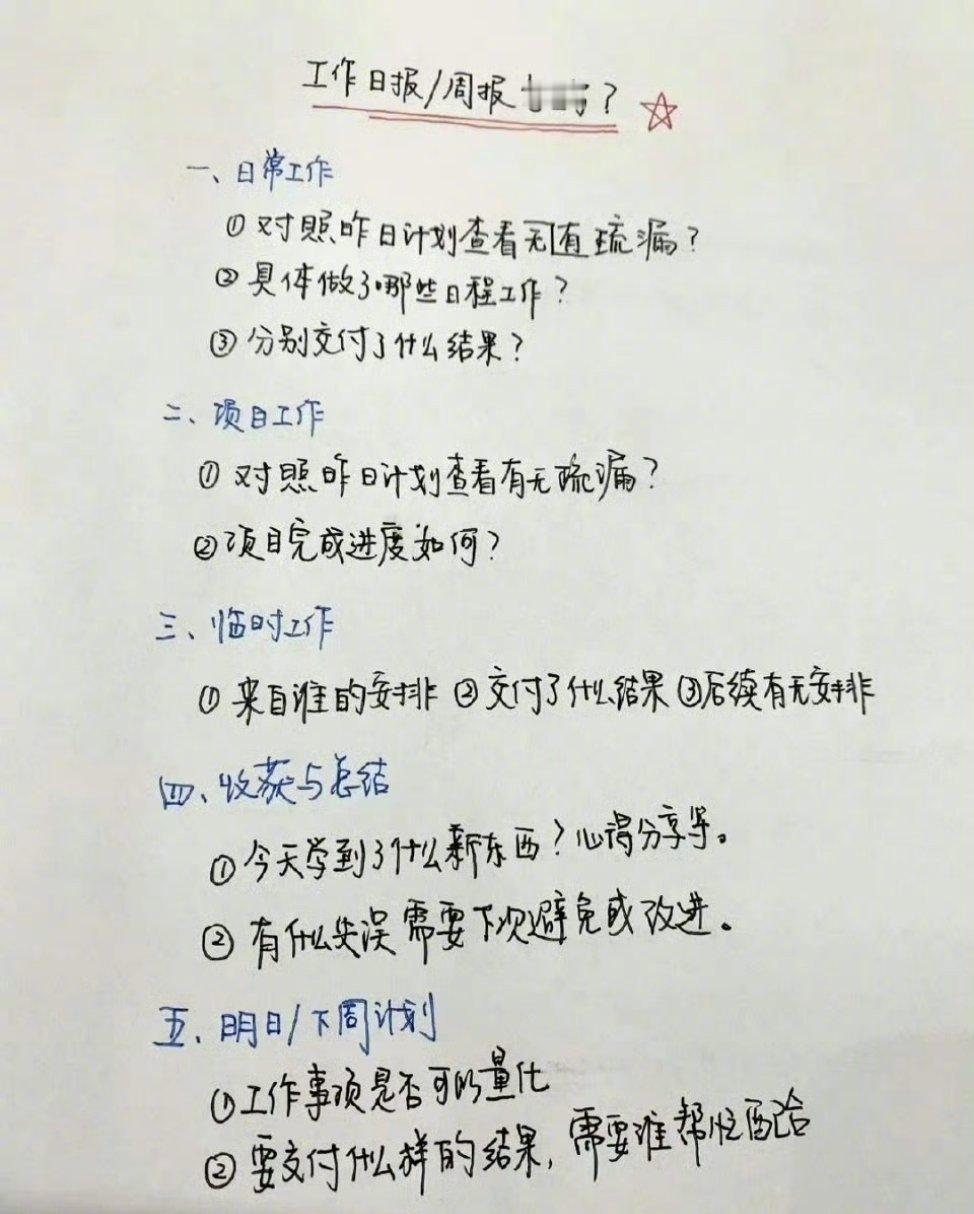 工作日报/周报 ?
一、日常工作
①对照昨日计划查看无有疏漏?
②具体做了哪些日程工作?
③分别交付了什么结果?
二、项目工作
①对照昨日计划查看有无疏漏?
②项目完成进度如何?
三、临时工作
①来自谁的安排 ②交付了什么结果 ③后续有无安排
四、收获与总结
①今天学到了什么新东西?心得分享等。
②有什么失误需要下次避免或改进。
五、明日/下周计划
①工作事项是否可以量化
②要交付什么样的结果,需要谁帮忙配合